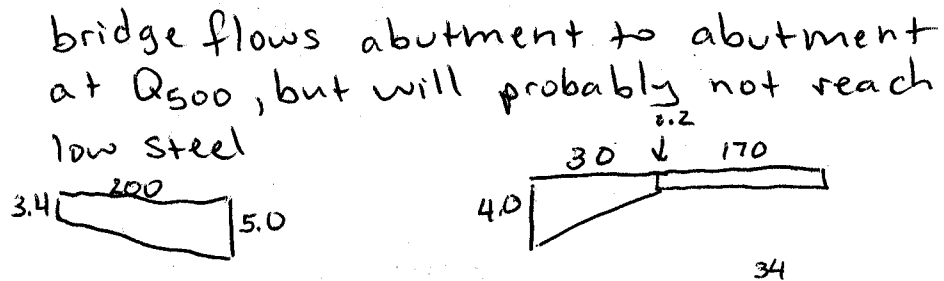 bridge flows abutment to abutment
at Q500, but will probably not reach
low steel
30 ↓ 170
200
3.4 5.0 4.0
34